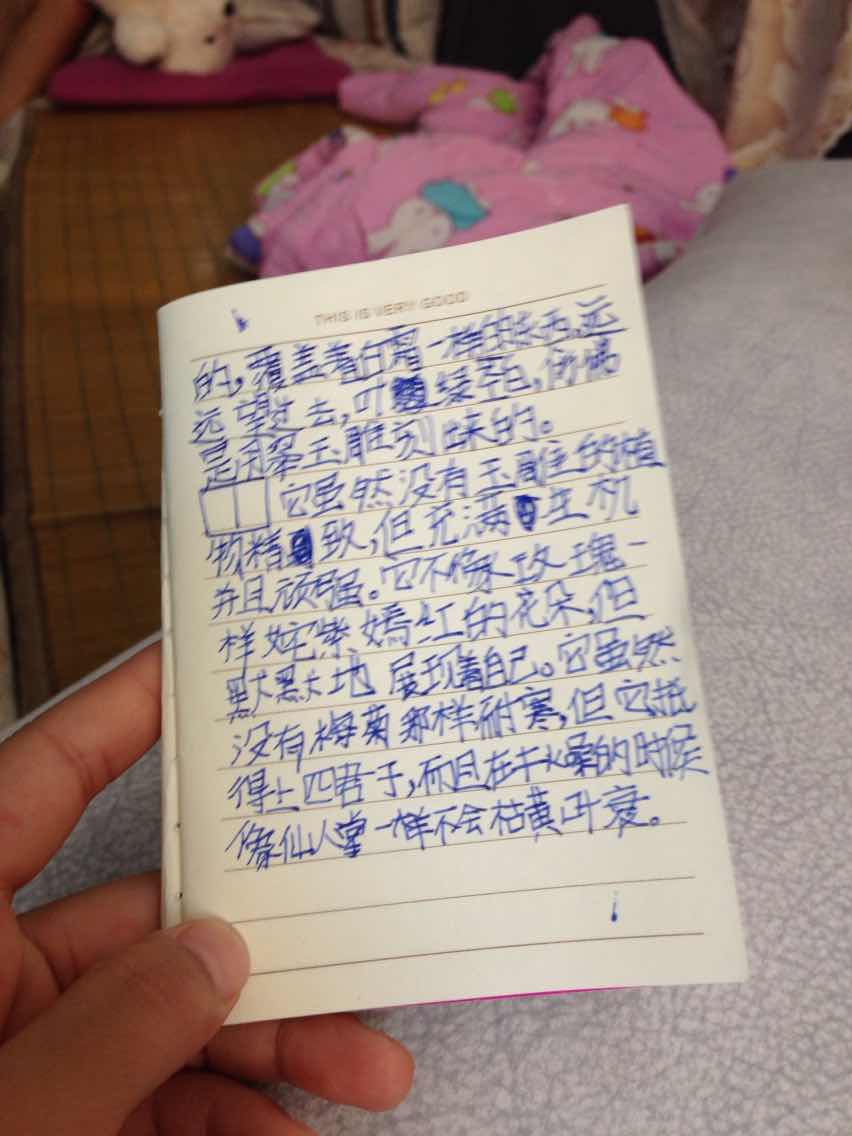 THIS IS VERY GOOD
的,覆盖着白霜一样的东西,远
远望过去,叶绿空白,仿佛
是用翠玉雕刻出来的。
它虽然没有玉雕的植
物精致,但充满生机
并且顽强。它不像玫瑰一
样姹紫嫣红的花朵,但
默默地展现着自己。它虽然
没有梅菊那样耐寒,但它抵
得上四君子,而且在干燥的时候
像仙人掌一样不会枯黄叶衰。